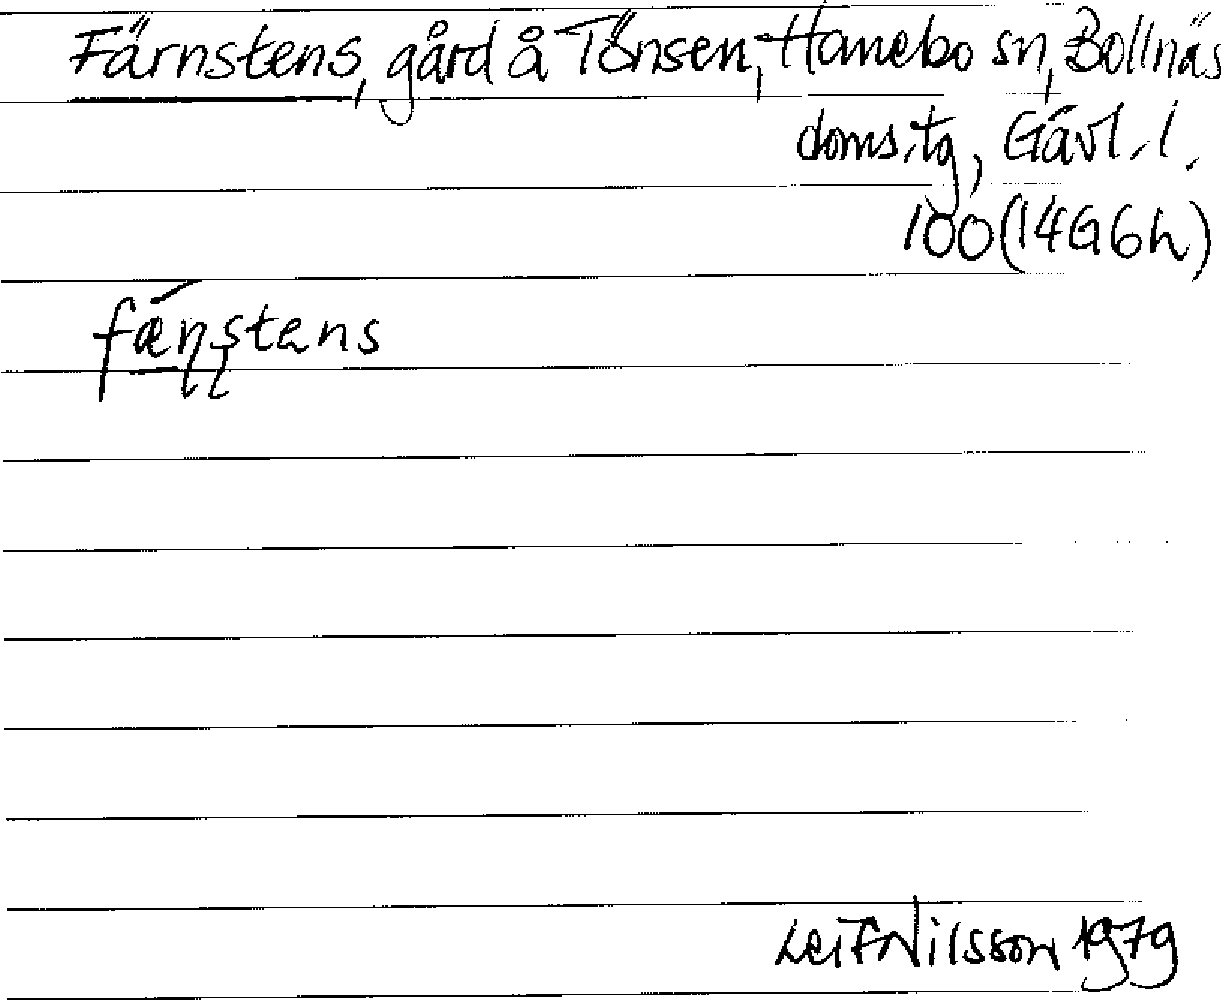 Färnstens, gård å Tönsen, Hanebo sn, Bollnäs
doms.tg, Gävl. l.
100 (14G6h)
fǽ̠ɳʂtens
Leif Nilsson 1979